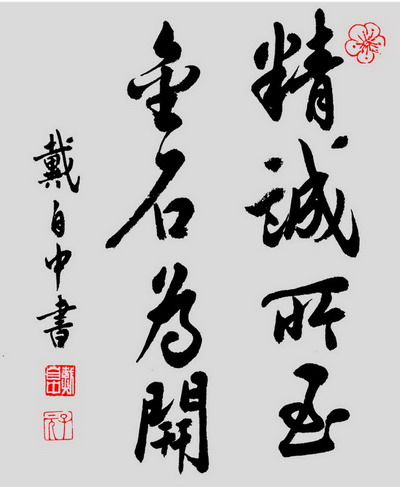 精誠所至
金石為開
戴自中書